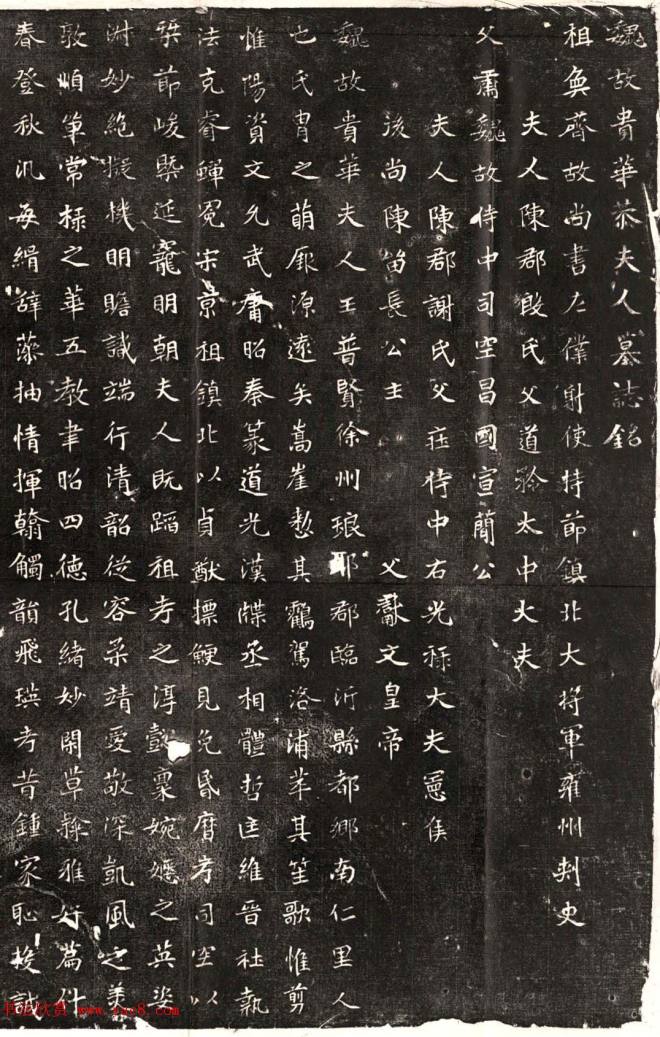 魏故貴華恭夫人墓誌銘
祖奐齊故尚書左僕射使持節鎮北大將軍雍州刾史
夫人陳郡殷氏父道矜太中大夫
父肅魏故侍中司空昌國宣簡公
夫人陳郡謝氏父莊侍中右光祿大夫憲侯
後尚陳留長公主 父獻文皇帝
魏故貴華夫人王普賢徐州琅耶郡臨沂縣都鄉南仁里人
也氏胄之萌厥源遠矣嵩崖愁其鸖駕洛浦莘其笙歌惟剪
惟陽資文允武庸昭秦篆道光漢牒丞相體哲匡維晉社執
法克睿蟬冕宋京祖鎮北以貞猷摽鯁見免昏磨考司空以
榮節峻槩延寵明朝夫人既蹈祖考之淳懿稟婉嬺之英姿
淵妙絕擬機明瞻識端行清韶從容柔靖愛敬深凱風之美
敦順單常棣之華五教聿昭四德孔緒妙閑草隸雅好篇什
春登秋汎每緝辭藻抽情揮翰觸韻飛瑛考昔鍾家恥梭計
书法欣赏 www.yac8.com